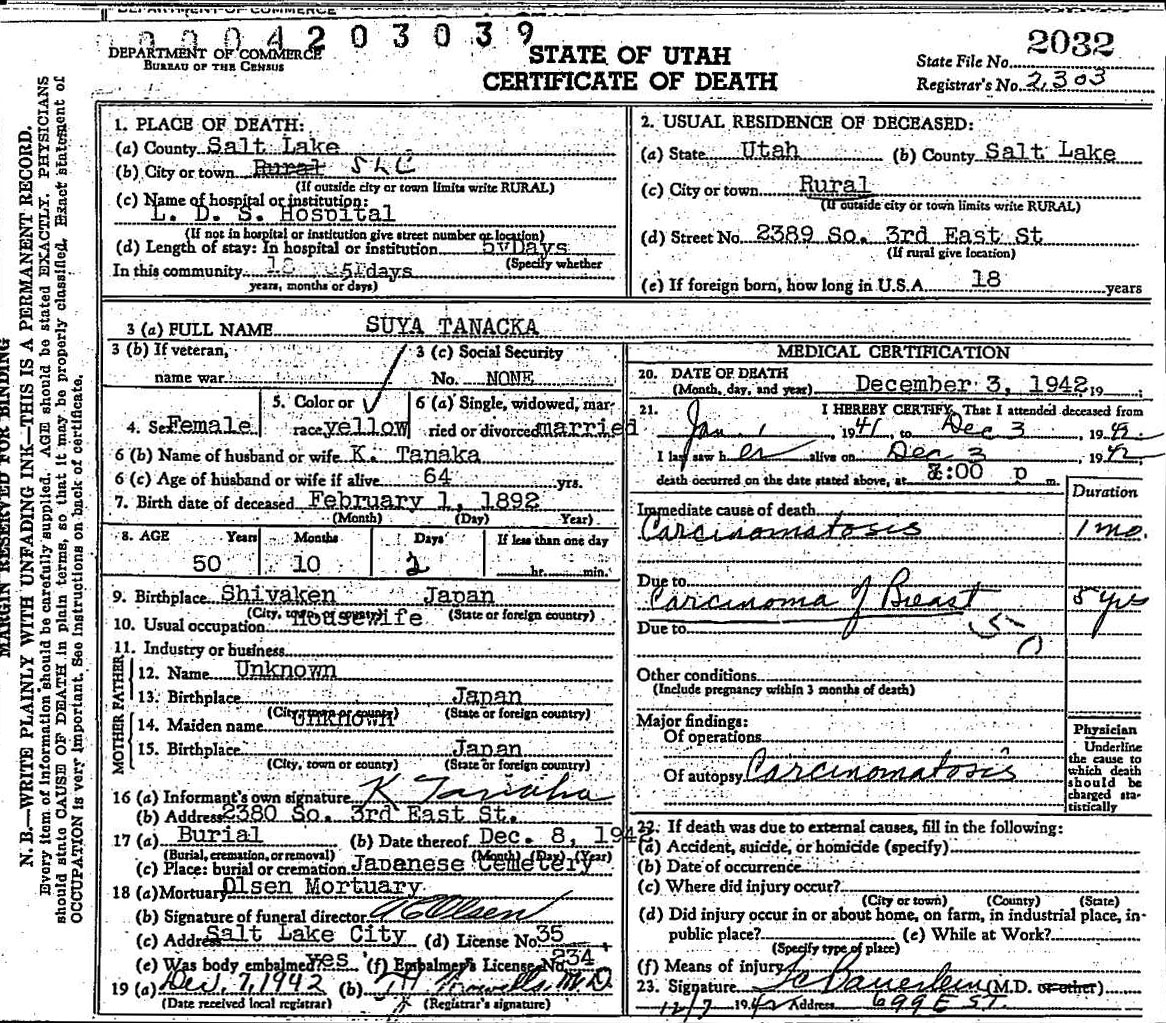 DEPARTMENT OF COMMERCE
0 0 0 0 4 2 0 3 0 3 9
DEPARTMENT OF COMMERCE
BUREAU OF THE CENSUS
STATE OF UTAH
CERTIFICATE OF DEATH
State File No. 2032
Registrar's No. 2303
MARGIN RESERVED FOR BINDING
N. B.—WRITE PLAINLY WITH UNFADING INK—THIS IS A PERMANENT RECORD.
Every item of information should be carefully supplied. AGE should be stated EXACTLY. PHYSICIANS
should state CAUSE OF DEATH in plain terms, so that it may be properly classified. Exact statement of
OCCUPATION is very important. See instructions on back of certificate.
1. PLACE OF DEATH:
(a) County Salt Lake
(b) City or town Rural SLC
(If outside city or town limits write RURAL)
(c) Name of hospital or institution:
L. D. S. Hospital
(If not in hospital or institution give street number or location)
(d) Length of stay: In hospital or institution Days
(Specify whether
In this community 18 51 days
years, months or days)
2. USUAL RESIDENCE OF DECEASED:
(a) State Utah (b) County Salt Lake
(c) City or town Rural
(If outside city or town limits write RURAL)
(d) Street No. 2389 So. 3rd East St
(If rural give location)
(e) If foreign born, how long in U.S.A. 18 years
3 (a) FULL NAME SUYA TANACKA
3 (b) If veteran,
name war
3 (c) Social Security
No. NONE
4. Sex Female
5. Color or
race yellow
6 (a) Single, widowed, mar-
ried or divorced married
6 (b) Name of husband or wife K. Tanaka
6 (c) Age of husband or wife if alive 64 yrs.
7. Birth date of deceased February 1, 1892
(Month) (Day) Year)
8. AGE Years Months Days If less than one day
50 10 2 hr. min.
9. Birthplace Shivaken Japan
(City, town or county) (State or foreign country)
10. Usual occupation Housewife
11. Industry or business
FATHER
12. Name Unknown
13. Birthplace Japan
(City, town or county) (State or foreign country)
MOTHER
14. Maiden name Unknown
15. Birthplace Japan
(City, town or county) (State or foreign country)
16 (a) Informant's own signature K Tanaka
(b) Address 2380 So. 3rd East St.
17 (a) Burial (b) Date thereof Dec. 8, 1942
(Burial, cremation, or removal) (Month) (Day) (Year)
(c) Place: burial or cremation Japanese Cemetery
18 (a) Mortuary Olsen Mortuary
(b) Signature of funeral director Olsen
(c) Address Salt Lake City (d) License No. 35
(e) Was body embalmed yes (f) Embalmer's License No. 234
19 (a) Dec. 7, 1942 (b) M.D.
(Date received local registrar) (Registrar's signature)
MEDICAL CERTIFICATION
20. DATE OF DEATH
(Month, day, and year) December 3, 1942, 19
21. I HEREBY CERTIFY, That I attended deceased from
Jan. 1, 1941, to Dec 3, 1942.
I last saw her alive on Dec 3, 1942
death occurred on the date stated above, at :00 p m.
Duration
Immediate cause of death
Carcinomatosis 1 mo.
Due to
Carcinoma of Breast 5 yrs
Due to 50
Other conditions
(Include pregnancy within 3 months of death)
Major findings:
Of operations
Of autopsy Carcinomatosis
Physician
Underline
the cause to
which death
should be
charged sta-
tistically
22. If death was due to external causes, fill in the following:
(a) Accident, suicide, or homicide (specify)
(b) Date of occurrence
(c) Where did injury occur?
(City or town) (County) (State)
(d) Did injury occur in or about home, on farm, in industrial place, in-
public place? (e) While at Work?
(Specify type of place)
(f) Means of injury
23. Signature Bauerlein (M.D. or other)
12/7 1942 Address 699 E ST.